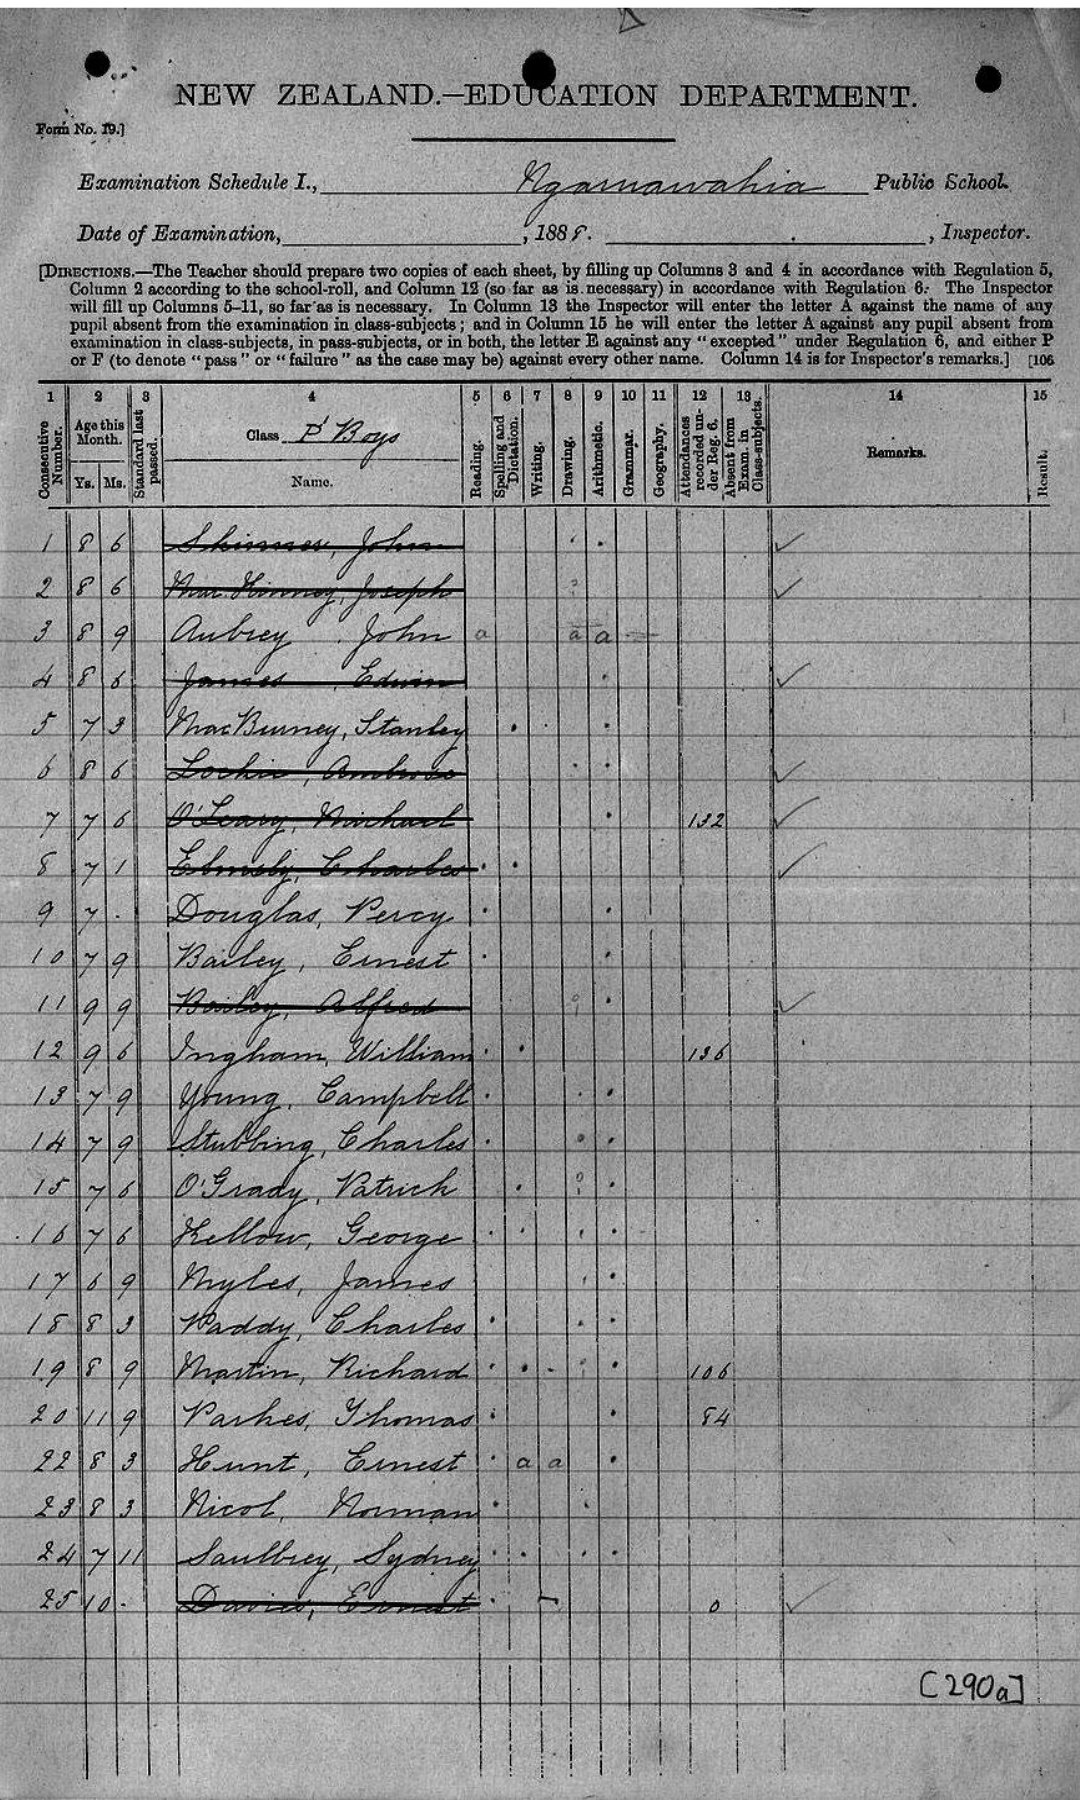 NEW ZEALAND.—EDUCATION DEPARTMENT.
Form No. 19.]
Examination Schedule I., Ngaruawahia Public School.
Date of Examination, , 1888. , Inspector.
[DIRECTIONS.—The Teacher should prepare two copies of each sheet, by filling up Columns 3 and 4 in accordance with Regulation 5,
Column 2 according to the school-roll, and Column 12 (so far as is necessary) in accordance with Regulation 6. The Inspector
will fill up Columns 5–11, so far as is necessary. In Column 13 the Inspector will enter the letter A against the name of any
pupil absent from the examination in class-subjects; and in Column 15 he will enter the letter A against any pupil absent from
examination in class-subjects, in pass-subjects, or in both, the letter E against any "excepted" under Regulation 6, and either P
or F (to denote "pass" or "failure" as the case may be) against every other name. Column 14 is for Inspector's remarks.] [106
1 2 3 4 5 6 7 8 9 10 11 12 13 14 15
Consecutive Number. Age this Month. Ys. Ms. Standard last passed. Class P' Boys Name. Reading. Spelling and Dictation. Writing. Drawing. Arithmetic. Grammar. Geography. Attendances recorded under Reg. 6. Absent from Exam. in Class-subjects. Remarks. Result.
1 8 6 Skinner, John ✓
2 8 6 MacKinney, Joseph ✓
3 8 9 Aubrey John a a a
4 8 6 James Edwin ✓
5 7 3 MacBurney, Stanley
6 8 6 Lockie, Ambrose ✓
7 7 6 O'Leary, Michael 132 ✓
8 7 1 Elmsly, Charles ✓
9 7 . Douglas, Percy
10 7 9 Bailey, Ernest
11 9 9 Bailey, Alfred ✓
12 9 6 Ingham, William 136
13 7 9 Young, Campbell
14 7 9 Stubbing, Charles
15 7 6 O'Grady, Patrick
16 7 6 Kellow, George
17 6 9 Myles, James
18 8 3 Paddy, Charles
19 8 9 Martin, Richard 106
20 11 9 Parkes, Thomas 84
22 8 3 Hunt, Ernest a a
23 8 3 Nicol, Norman
24 7 11 Saulbrey, Sydney
25 10 . Davies, Ernest 0 ✓
[290a]